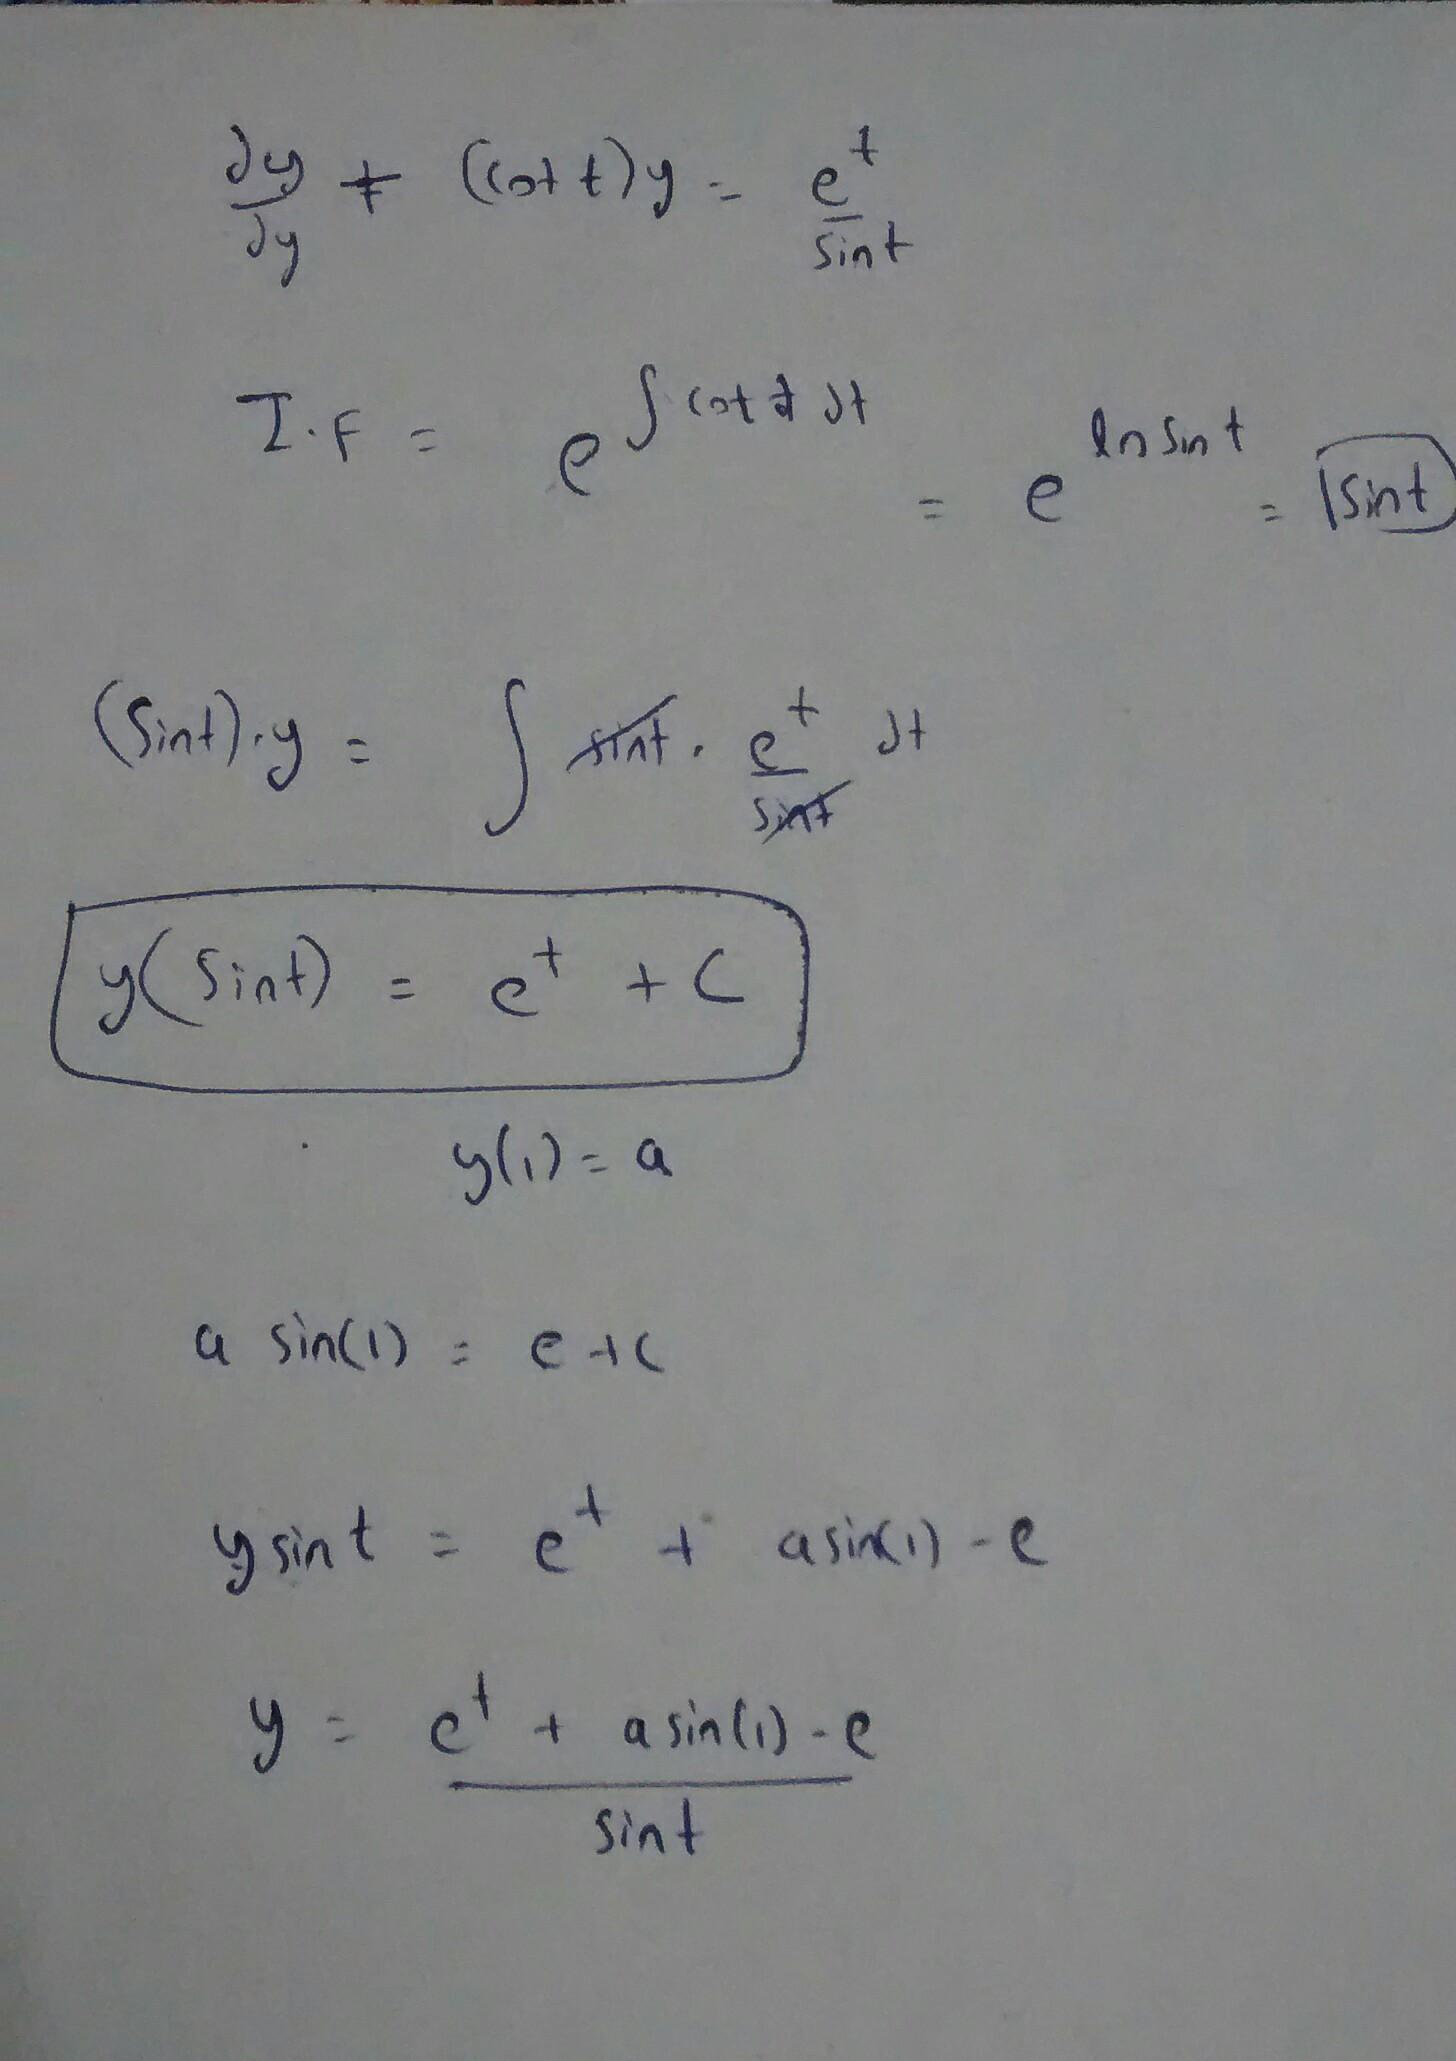 dy/dy + (cot t)y = e^t/sint
I.F = e^∫cot t dt = e^ln sint = sint
(sint).y = ∫ sint . e^t/sint dt
y(sint) = e^t + C
y(1) = a
a sin(1) = e + c
y sint = e^t + a sin(1) - e
y = e^t + a sin(1) - e / sint